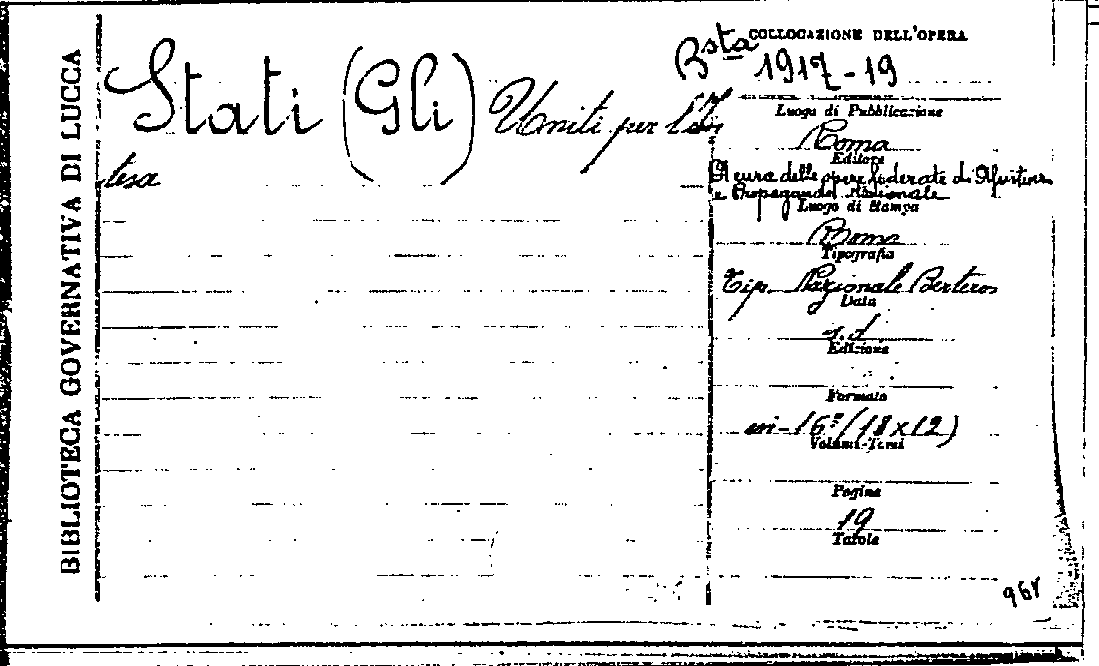 BIBLIOTECA GOVERNATIVA DI LUCCA
Stati (Gli) Uniti per l'In
tesa
COLLOCAZIONE DELL'OPERA
Bsta 1917-19
Luogo di Pubblicazione
Roma
Editore
A cura delle opere federate di
e Propaganda Nazionale
Luogo di Stampa
Roma
Tipografia
Tip. Nazionale Bertero
Data
s.d.
Edizione
Formato
in-16°/(18x12)
Volumi-Tomi
Pagine
19
Tavole